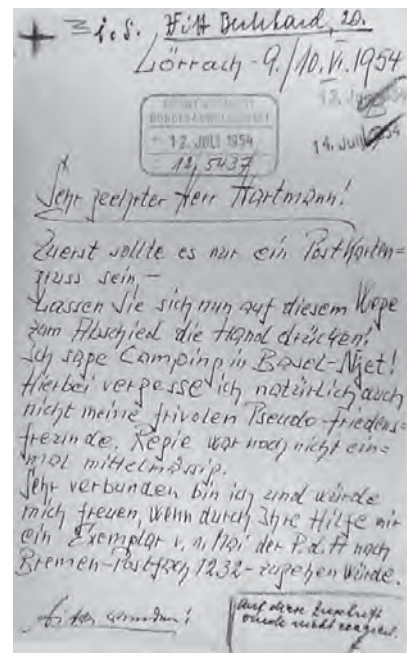 i. S. Burkhard, 20.
Lörrach - 9./10. VI. 1954
12. JULI 1954
14. Juli 1954
12, 5437
Sehr geehrter Herr Hartmann!
Zuerst sollte es nur ein Postkarten=
gruss sein, -
Lassen Sie sich nun auf diesem Wege
zum Abschied die Hand drücken!
Ich sage Camping in Basel - Njet!
Hierbei vergesse ich natürlich auch
nicht meine frivolen Pseudo-friedens=
freunde. Regie war noch nicht ein=
mal mittelmässig.
Sehr verbunden bin ich und würde
mich freuen, wenn durch Ihre Hilfe mir
ein Exemplar v. 1. Mai der P. d. A nach
Bremen-Postfach 1232 - zugehen würde.
Auf diese Zuschrift
wurde nicht reagiert.